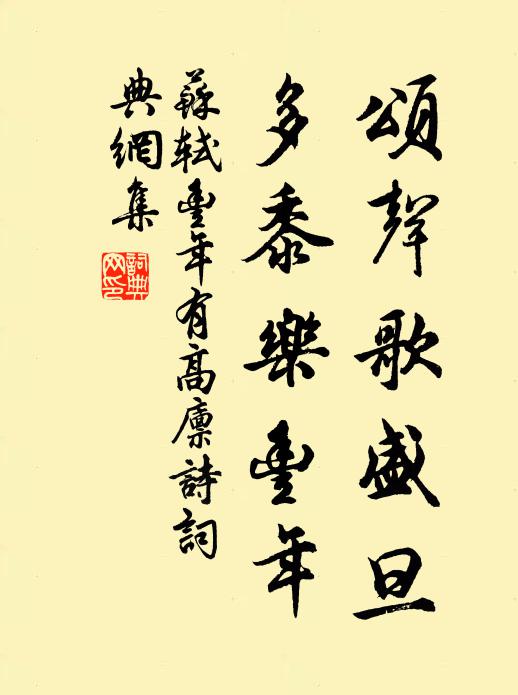 頌聲歌盛旦
多黍樂豐年
蘇軾豐年有高廩詩詞
典網集
詞典網印